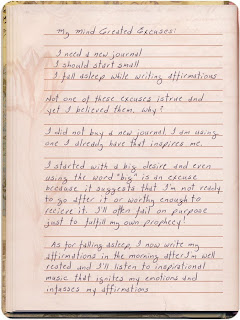 My Mind Created Excuses!
I need a new journal
I should start small
I fall asleep while writing affirmations
Not one of these excuses is true and
yet I believed them. Why?
I did not buy a new journal I am using
one I already have that inspires me.
I started with a big desire and even
using the word "big" is an excuse
because it suggests that I'm not ready
to go after it or worthy enough to
recieve it. I'll often fail on purpose
just to fulfill my own prophecy!
As for falling asleep, I now write my
affirmations in the morning after I'm well
rested and I'll listen to inspirational
music that ignites my emotions and
infuses my affirmations